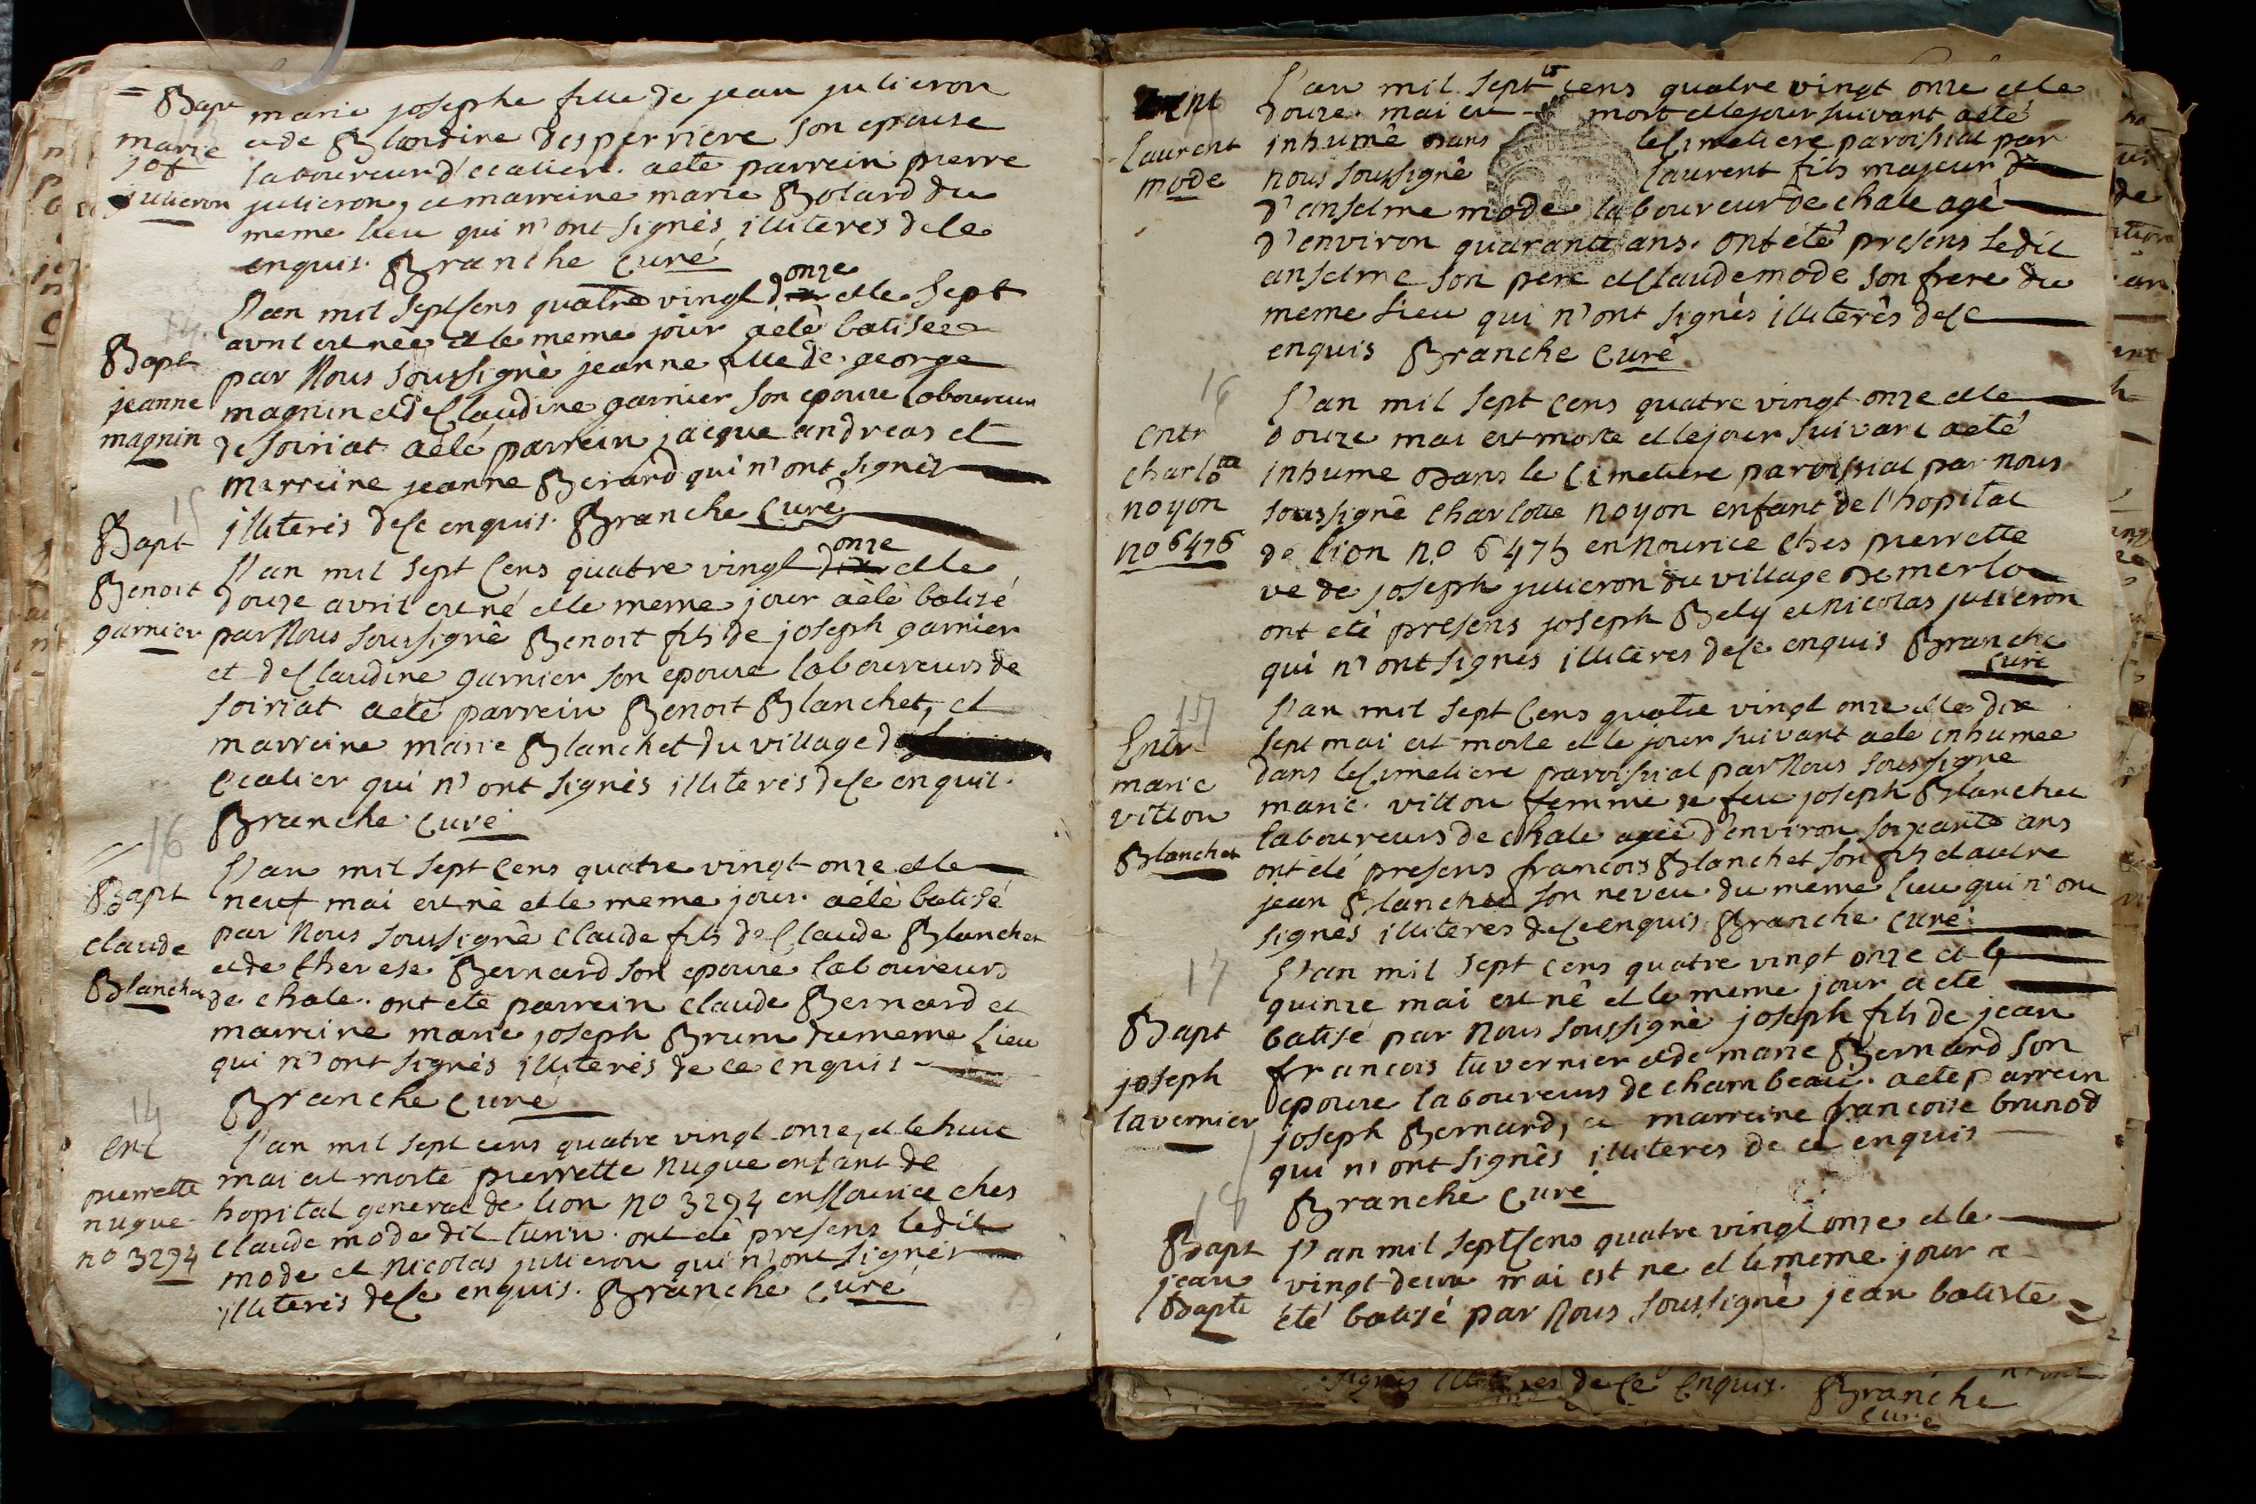 = Bapt
marie
jos
julieron
marie josephe fille de jean julieron
et de Blandine desperriere son epouse
laboureur d'ecalier. a ete parrein pierre
julieron, et marreine marie Bolard du
meme lieu qui n'ont signés illiteres de ce
enquis. Branche Curé
14
Bapt
jeanne
magnin
L'an mil sept Cens quatre vingt onze et le sept
avril est née et le meme jour a été batisée
par Nous soussigné jeanne fille de george
magnin et de Claudine garnier son epouse laboureur
de soiriat a été parrein jacque andreas et
marreine jeanne Berard qui n'ont signés
illiterés de ce enquis. Branche Curé
15
Bapt
Benoit
garnier
L'an mil sept Cens quatre vingt onze et le
douze avril est né et le meme jour a été batisé
par Nous soussigné Benoit fils de joseph garnier
et de Claudine garnier son epouse laboureurs de
soiriat a été parrein Benoit Blanchet, et
marreine marie Blanchet du village d
Ecalier qui n'ont signés illiterés de ce enquit.
Branche Curé
16
Bapt
claude
Blanchet
L'an mil sept Cens quatre vingt onze et le
neuf mai est né et le meme jour a été batisé
par Nous soussigné Claude fils de Claude Blanchet
et de therese Bernard son epouse laboureurs
de chale. ont ete parrein claude Bernard et
marreine marie joseph Brun du meme Lieu
qui n'ont signés illiterés de ce enquis
Branche Curé
14
ent
pierrette
nugue
no 3294
L'an mil sept cens quatre vingt onze, et le huit
mai est morte pierrette nugue enfant de
hopital general de lion no 3294 en Nourice ches
Claude mode dit tunin. ont été presens ledit
mode et nicolas julieron qui n'ont signés
illiterés de ce enquis. Branche Curé
ent
laurent
mode
15
L'an mil sept cens quatre vingt onze et le
douze mai est mort et le jour suivant a eté
inhumé dans le Cimetiere paroissial par
nous soussigné laurent fils majeur
d'anselme mode laboureur de chale agé
d'environ quarante ans. ont eté presens ledit
anselme son pere et Claude mode son frere du
meme lieu qui n'ont signés illiterés de ce
enquis Branche Curé
16
entr
charlotte
noyon
no 6476
L'an mil sept cens quatre vingt onze et le
douze mai est morte et le jour suivant a eté
inhume dans le Cimetiere paroissial par nous
soussigné Charlotte noyon enfant de l'hopital
de lion no 6475 en nourice ches pierrette
ve de joseph julieron du village de merlo
ont eté presens joseph Bely et nicolas julieron
qui n'ont signés illiteres de ce enquis Branche
Curé
17
Entr
marie
vittou
Blanchet
L'an mil sept Cens quatre vingt onze et le dix
sept mai est morte et le jour suivant a ete inhumee
dans le Cimetiere paroissial par Nous soussigné
marie vittou femme de feu joseph Blanchet
laboureurs de chale agée d'environ soixante ans
ont été presens francois Blanchet son fils et autre
jean Blanchet son neveu du meme lieu qui n'ont
signés illiteres de ce enquis Branche Curé
17
Bapt
joseph
tavernier
L'an mil sept cens quatre vingt onze et le
quinze mai est né et le meme jour a ete
batisé par Nous soussigné joseph fils de jean
francois tavernier et de marie Bernard son
epouse laboureurs de chambeau. a ete parrein
joseph Bernard, et marreine francoise brunod
qui n'ont signés illiteres de ce enquis
Branche Curé
18
Bapt
jean
Bapte
L'an mil sept Cens quatre vingt onze et le
vingt deux mai est ne et le meme jour a
été batisé par Nous soussigné jean batiste =
signés illiteres de Ce Enquis. Branche
Curé